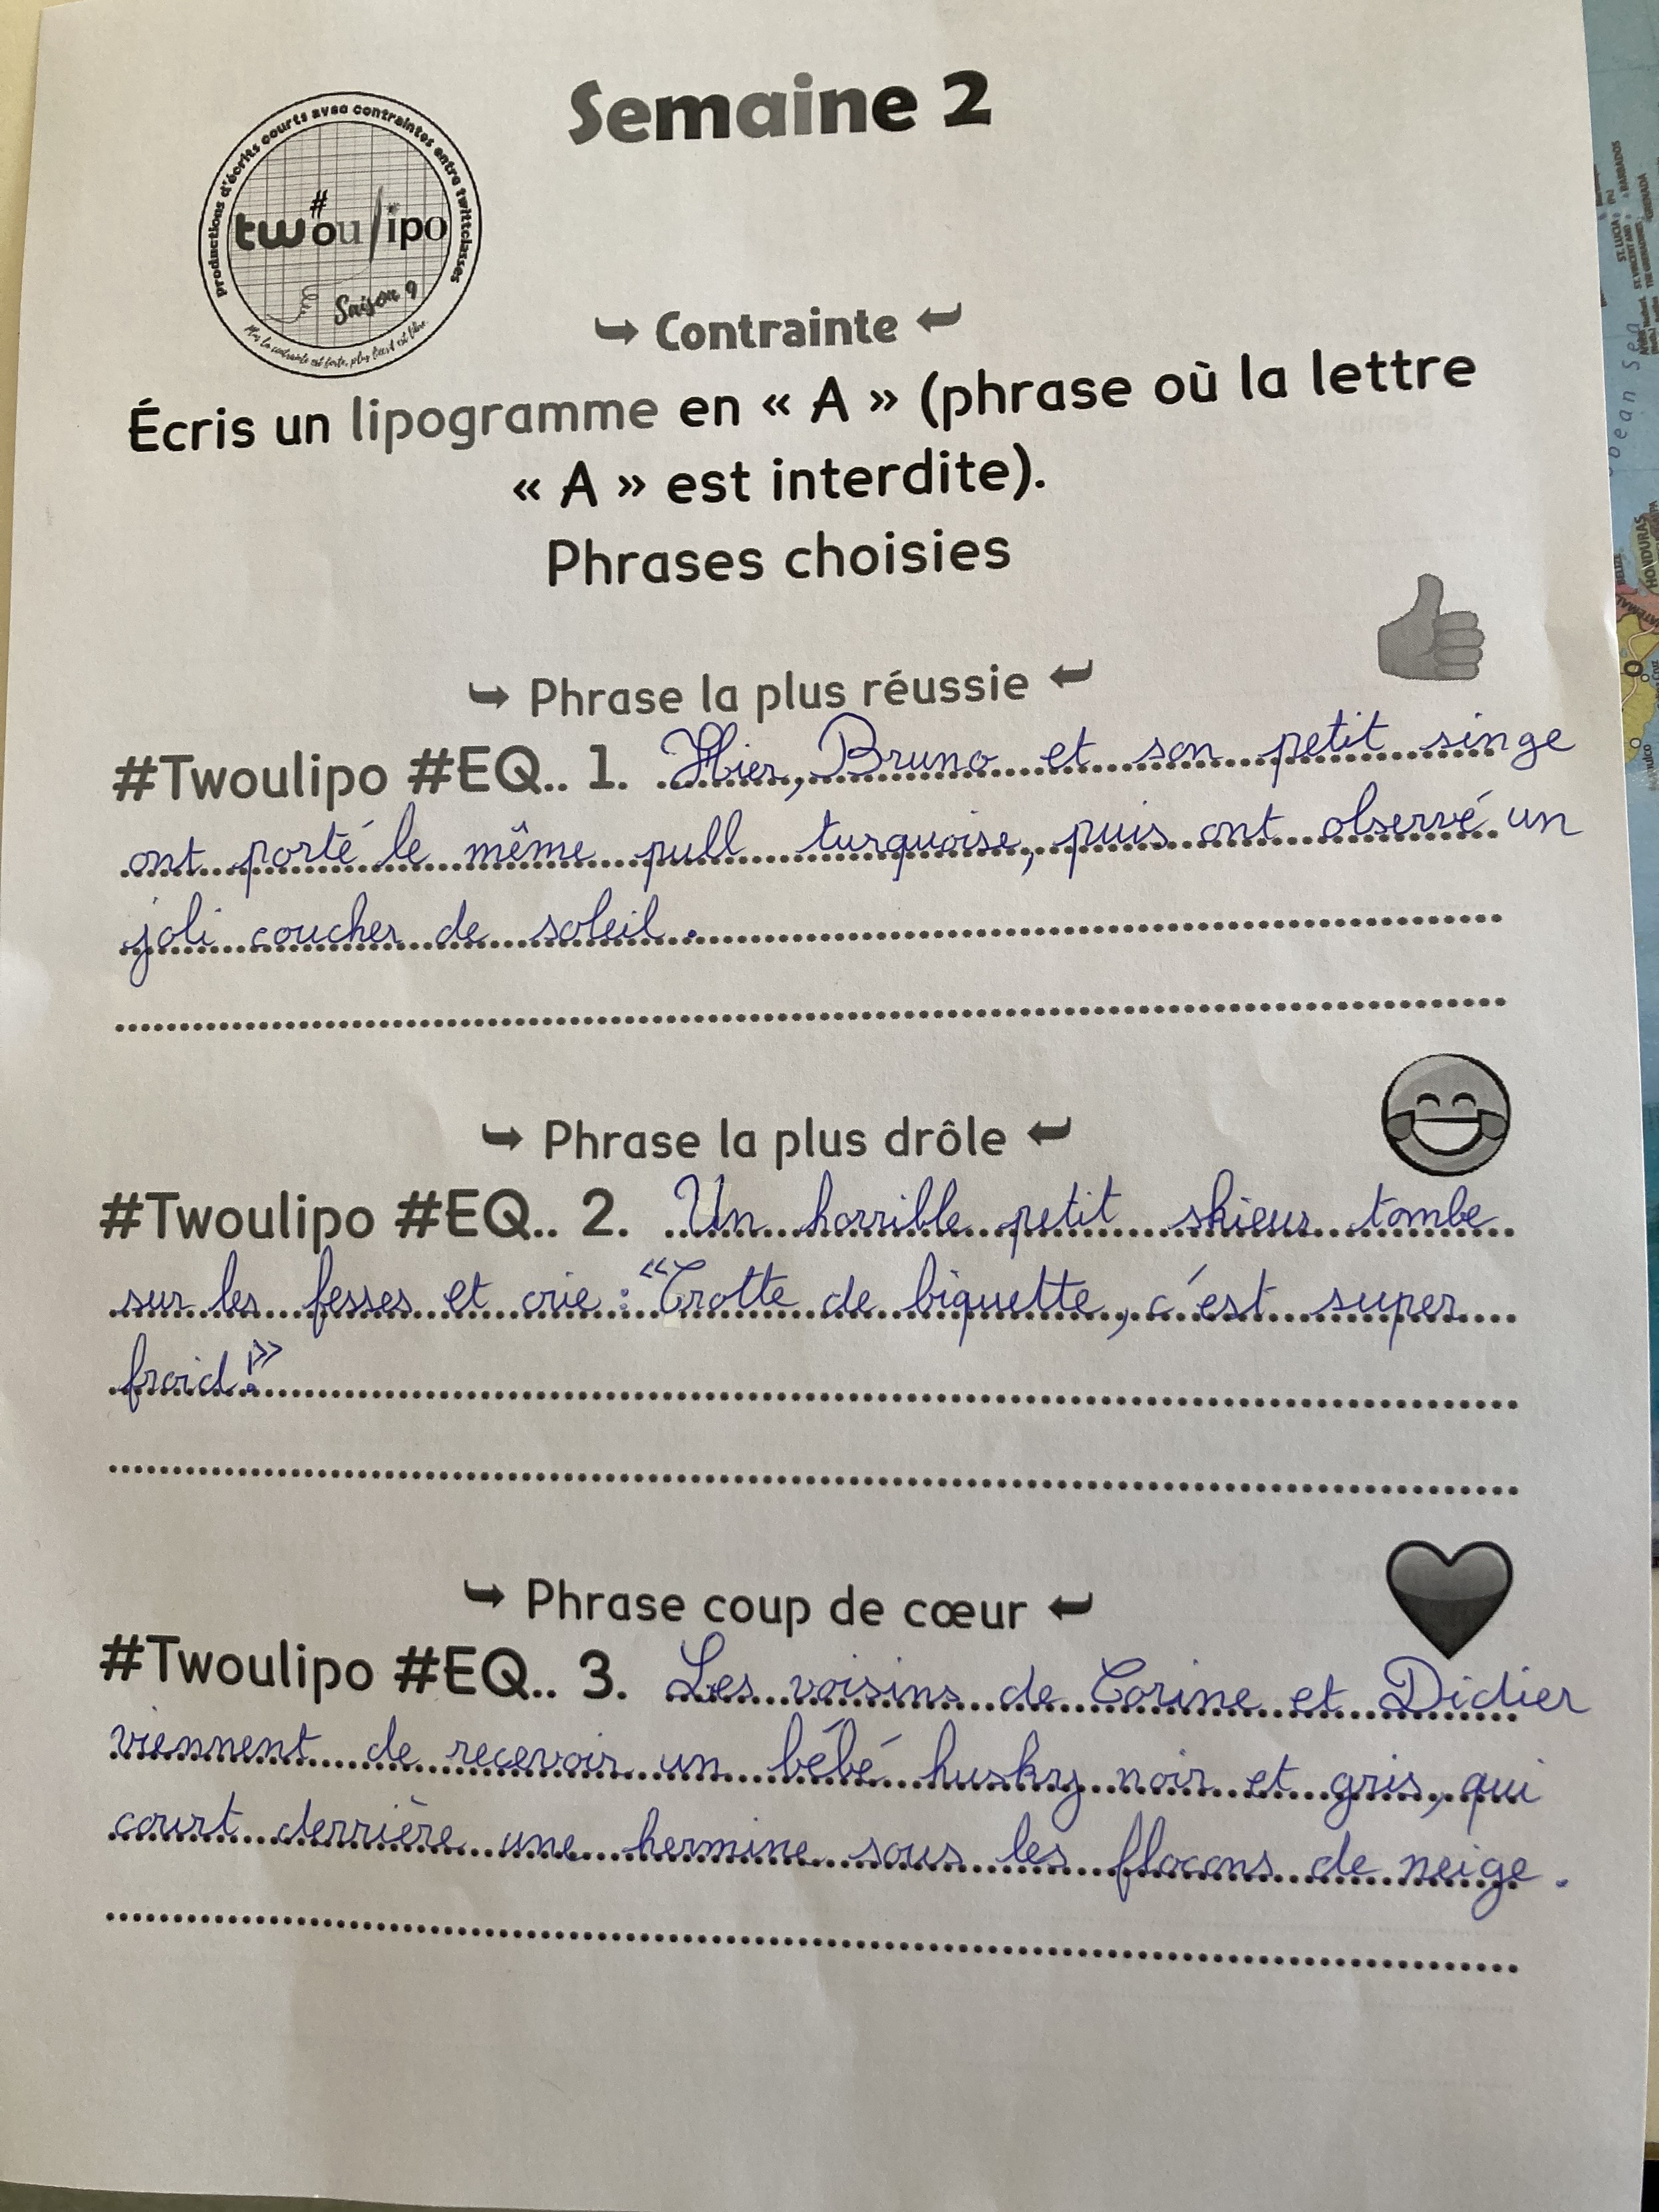 Semaine 2
productions d'écrits courts avec contraintes entre twittclasses
#
twoulipo
Saison 9
Plus la contrainte est forte, plus l'écrit est libre.
↪ Contrainte ↩
Écris un lipogramme en « A » (phrase où la lettre
« A » est interdite).
Phrases choisies
↪ Phrase la plus réussie ↩
#Twoulipo #EQ.. 1. Hier, Bruno et son petit singe
ont porté le même pull turquoise, puis ont observé un
joli coucher de soleil.
↪ Phrase la plus drôle ↩
#Twoulipo #EQ.. 2. Un horrible petit skieur tombe
sur les fesses et crie : "Crotte de biquette, c'est super
froid !"
↪ Phrase coup de cœur ↩
#Twoulipo #EQ.. 3. Les voisins de Corine et Didier
viennent de recevoir un bébé husky noir et gris, qui
court derrière une hermine sous les flocons de neige.
BARBADOS
ST. LUCIA
GRENADA
HONDURAS